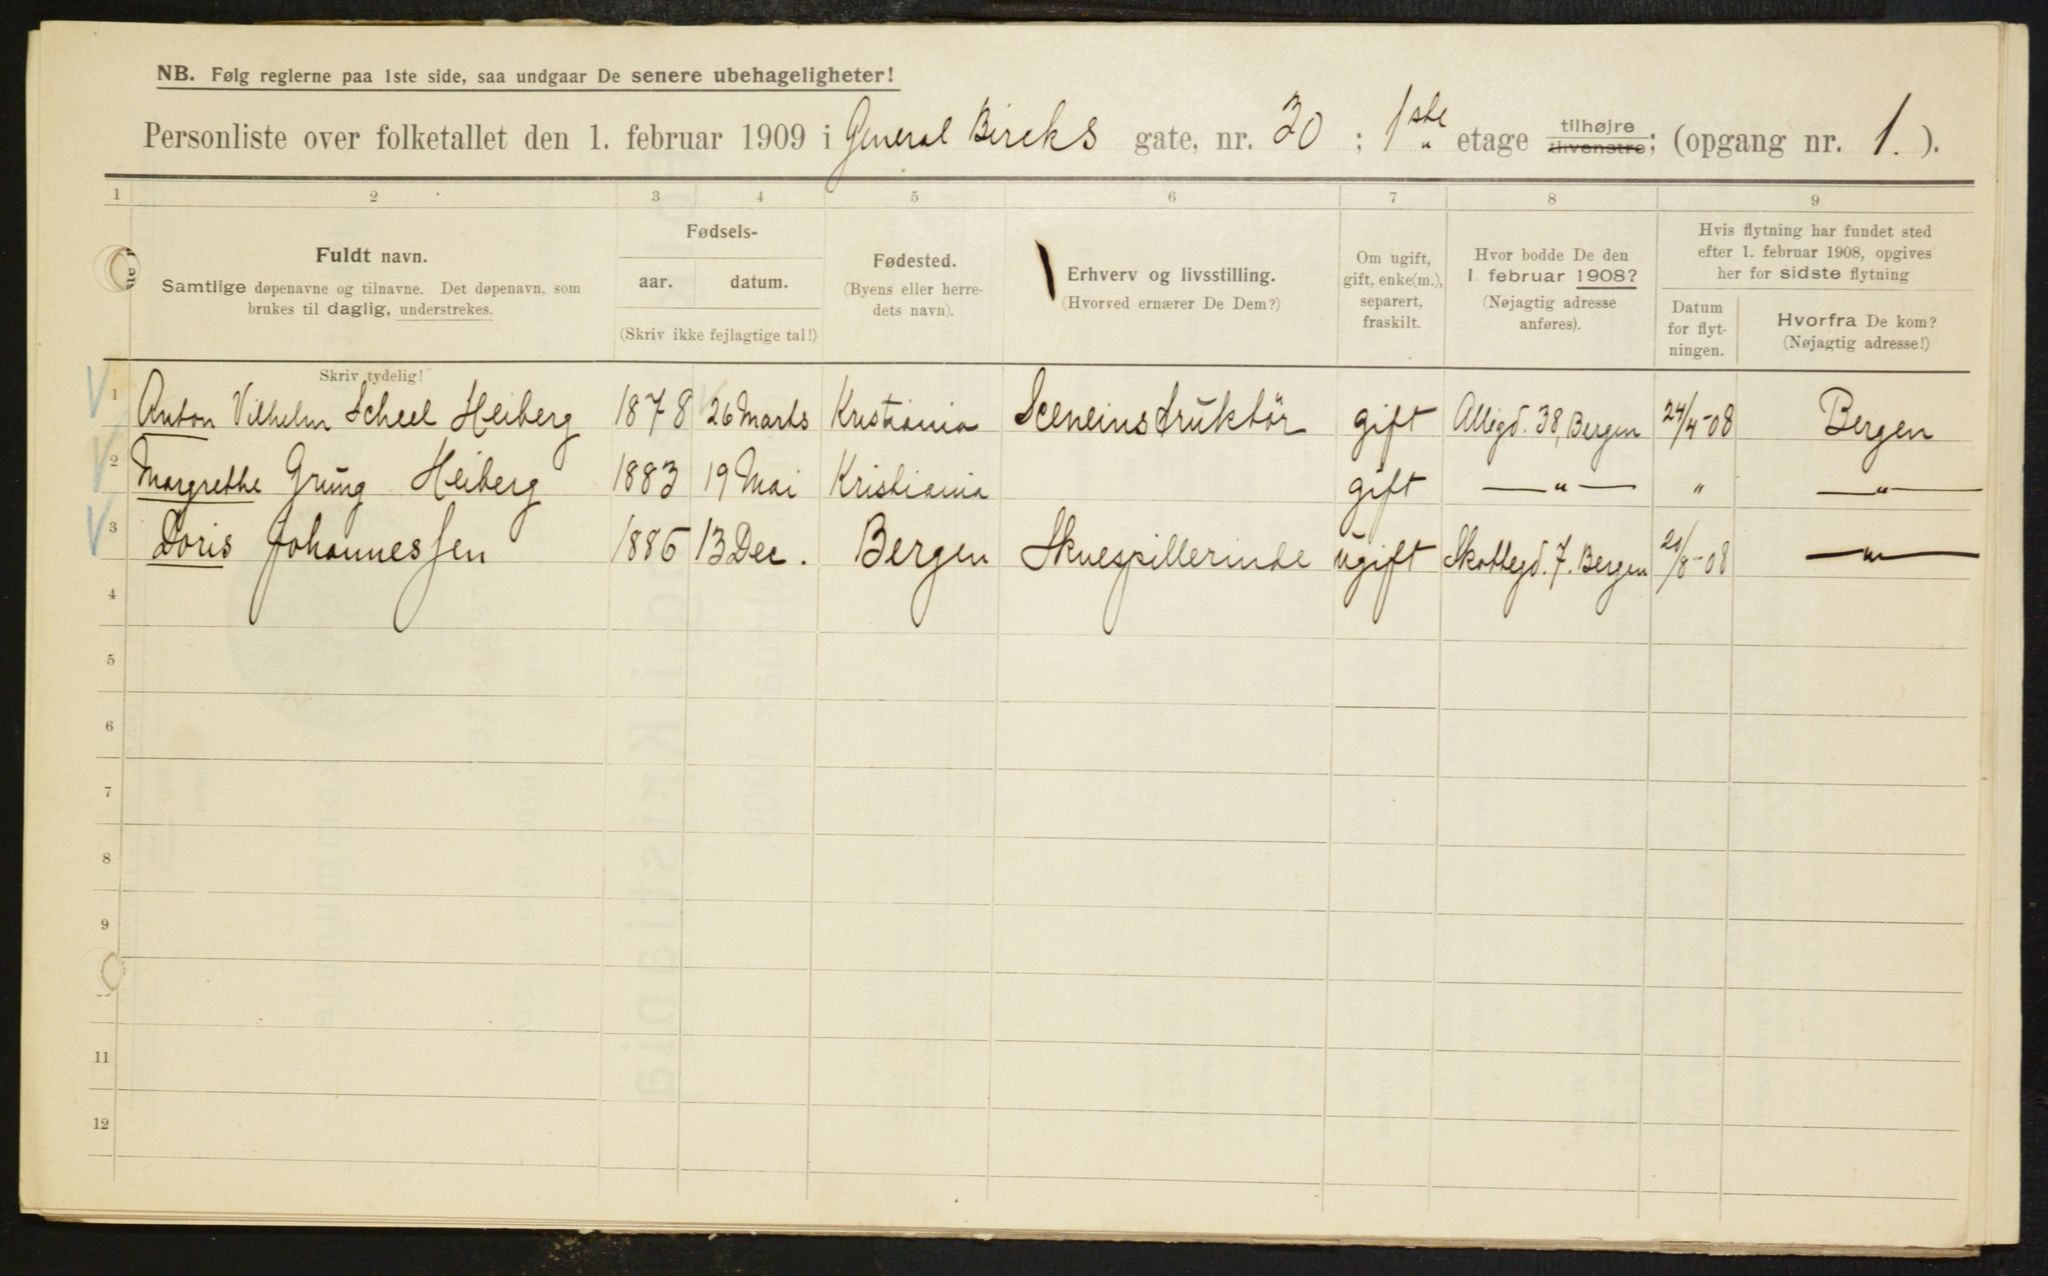 NB. Følg reglerne paa 1ste side, saa undgaar De senere ubehageligheter!
Personliste over folketallet den 1. februar 1909 i General Bircks gate, nr. 30 ; 1ste etage tilhøjre tilvenstre; (opgang nr. 1. ).
1 2 3 4 5 6 7 8 9
Fuldt navn.
Samtlige døpenavne og tilnavne. Det døpenavn, som
brukes til daglig, understrekes.
Fødsels-
aar. datum.
(Skriv ikke fejlagtige tal!)
Fødested.
(Byens eller herre-
dets navn).
Erhverv og livsstilling.
(Hvorved ernærer De Dem?)
Om ugift,
gift, enke(m.),
separert,
fraskilt.
Hvor bodde De den
1. februar 1908?
(Nøjagtig adresse
anføres).
Hvis flytning har fundet sted
efter 1. februar 1908, opgives
her for sidste flytning
Datum
for flyt-
ningen.
Hvorfra De kom?
(Nøjagtig adresse!)
Skriv tydelig!
1 Anton Vilhelm Scheel Heiberg 1878 26 Marts Kristiania Sceneinstruktør gift Allegd. 38, Bergen 24/4-08 Bergen
2 Margrethe Grung Heiberg 1883 19 Mai Kristiania gift —〃— 〃 —〃—
3 Doris Johannessen 1886 13 Dec. Bergen Skuespillerinde ugift Skottegd. 7. Bergen 20/8-08 —〃—
4
5
6
7
8
9
11
12